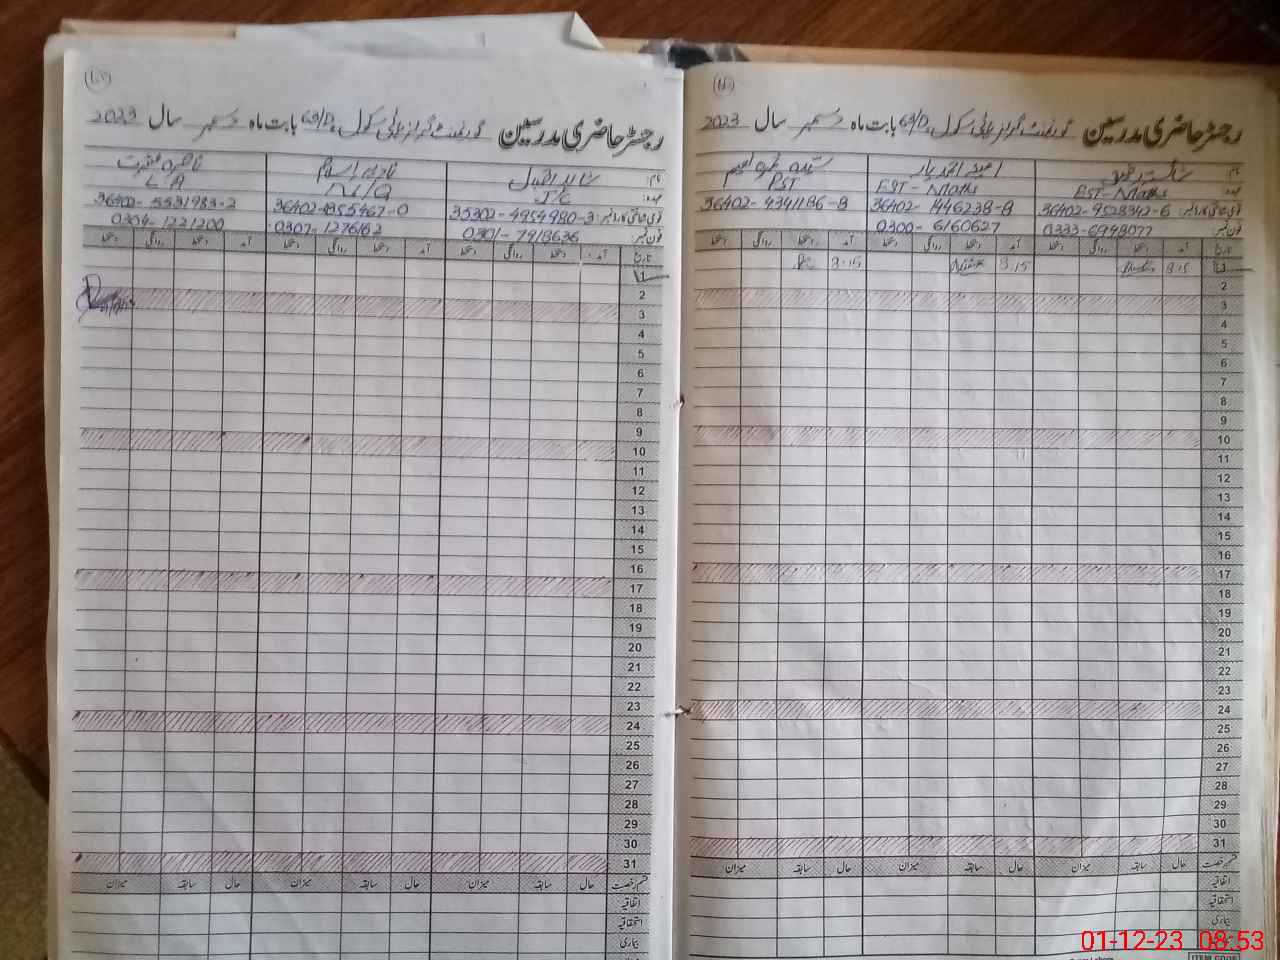 رجسٹر حاضری مدرسین گورنمنٹ گرلز ہائی سکول 69/D بابت ماہ دسمبر سال 2023
نام:
عہدہ: EST - Maths EST - Maths PST
قومی شناختی کارڈ نمبر: 36402-9528342-6 36402-1446238-8 36402-4341186-8
فون نمبر: 0333-6948077 0300-6160627
تاریخ آمد دستخط روانگی دستخط آمد دستخط روانگی دستخط آمد دستخط روانگی دستخط
1 8:15 8:15 8:15
2
3
4
5
6
7
8
9
10
11
12
13
14
15
16
17
18
19
20
21
22
23
24
25
26
27
28
29
30
31
قسم رخصت حال سابقہ میزان حال سابقہ میزان حال سابقہ میزان
اتفاقیہ
استحقاقیہ
بیماری
رجسٹر حاضری مدرسین گورنمنٹ گرلز ہائی سکول 69/D بابت ماہ دسمبر سال 2023
نام:
عہدہ: J/C N/Q L/A
قومی شناختی کارڈ نمبر: 35302-4954980-3 36402-5531983-2
فون نمبر: 0301-7918636 0307-1276162 0304-1221200
تاریخ آمد دستخط روانگی دستخط آمد دستخط روانگی دستخط آمد دستخط روانگی دستخط
1
2
3
4
5
6
7
8
9
10
11
12
13
14
15
16
17
18
19
20
21
22
23
24
25
26
27
28
29
30
31
قسم رخصت حال سابقہ میزان حال سابقہ میزان حال سابقہ میزان
اتفاقیہ
استحقاقیہ
بیماری
01-12-23 08:53
ITEM CODE